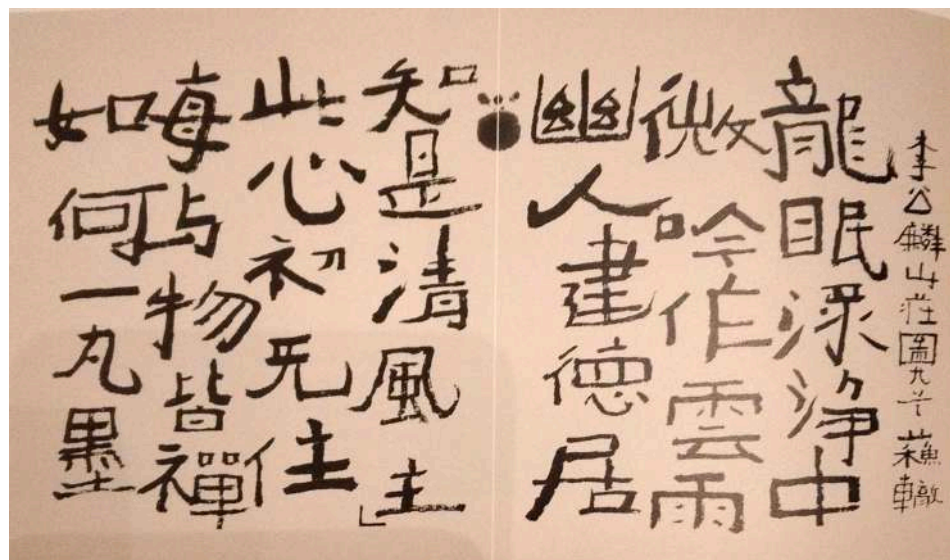 李公麟山莊圖九 蘇轍
龍眠淥淨中
微吟作雲雨
幽人建德居
知是清風主」
此心初无住
每与物皆禪
如何一丸墨